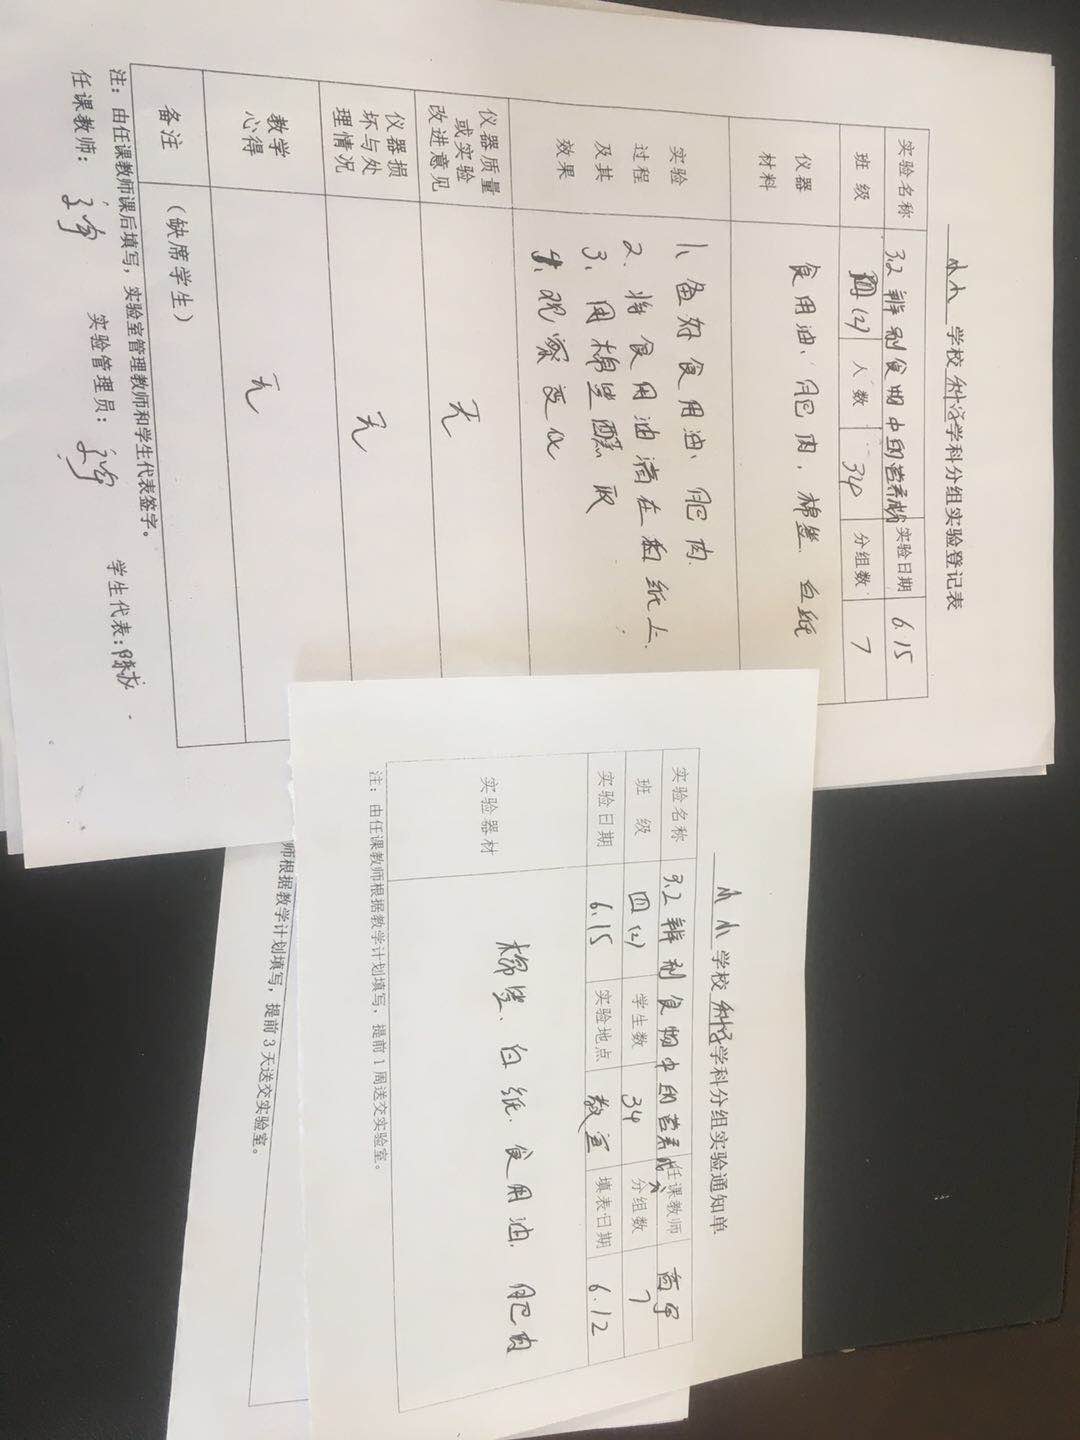 学校科学学科分组实验登记表
实验名称 3.2辨别食物中的营养 实验日期 6.15
班级 四(2) 人数 34 分组数 7
仪器材料 食用油、肥肉、棉签、白纸
实验过程及其效果
1、备好食用油、肥肉.
2、将食用油滴在白纸上.
3、用棉签蘸取
4、观察变化
仪器质量或实验改进意见 无
仪器损坏与处理情况 无
教学心得 无
备注 (缺席学生)
注：由任课教师课后填写，实验室管理教师和学生代表签字。
任课教师： 实验管理员： 学生代表：陈
学校科学学科分组实验通知单
实验名称 3.2辨别食物中的营养成分 任课教师
班级 四(2) 学生数 34 分组数 7
实验日期 6.15 实验地点 教室 填表日期 6.12
实验器材 棉签、白纸、食用油、肥肉
注：由任课教师根据教学计划填写，提前1周送交实验室。
师根据教学计划填写，提前3天送交实验室。